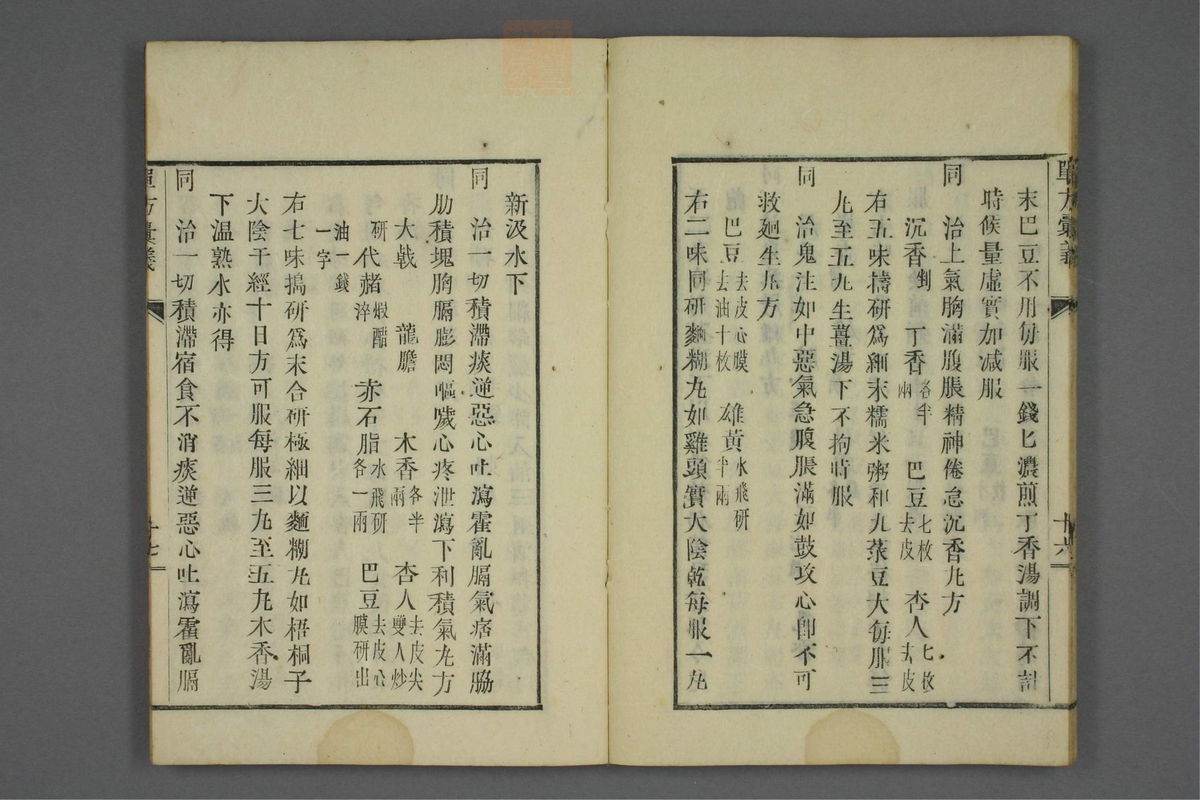 單方彙義
十六
末巴豆不用每服一錢匕濃煎丁香湯調下不計
時候量虛實加減服
同 治上氣胸滿腹脹精神倦怠沉香丸方
沉香剉 丁香各半兩 巴豆七枚去皮 杏人七枚去皮
右五味擣研爲細末糯米粥和丸菉豆大每服三
丸至五丸生薑湯下不拘時服
同 治鬼注如中惡氣急腹脹滿如鼓攻心卽不可
救廻生丸方
巴豆去皮心膜去油十枚 雄黃水飛研半兩
右二味同研麵糊丸如雞頭實大陰乾每服一丸
新汲水下
同 治一切積滯痰逆惡心吐瀉霍亂膈氣痞滿脇
肋積塊胸膈膨悶嘔噦心疼泄瀉下利積氣丸方
大戟 龍膽 木香各半兩 杏人去皮尖雙人炒
研 代赭煅醋淬 赤石脂水飛研各一兩 巴豆去皮心膜研出
油一錢一字
右七味搗研爲末合研極細以麵糊丸如梧桐子
大陰干經十日方可服每服三丸至五丸木香湯
下温熟水亦得
同 治一切積滯宿食不消痰逆惡心吐瀉霍亂膈
單方彙義
十七